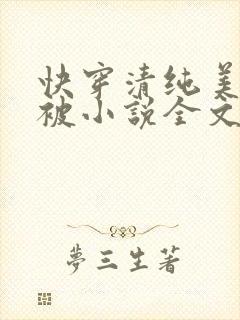 快穿清纯美
被小説全文
夢三生著